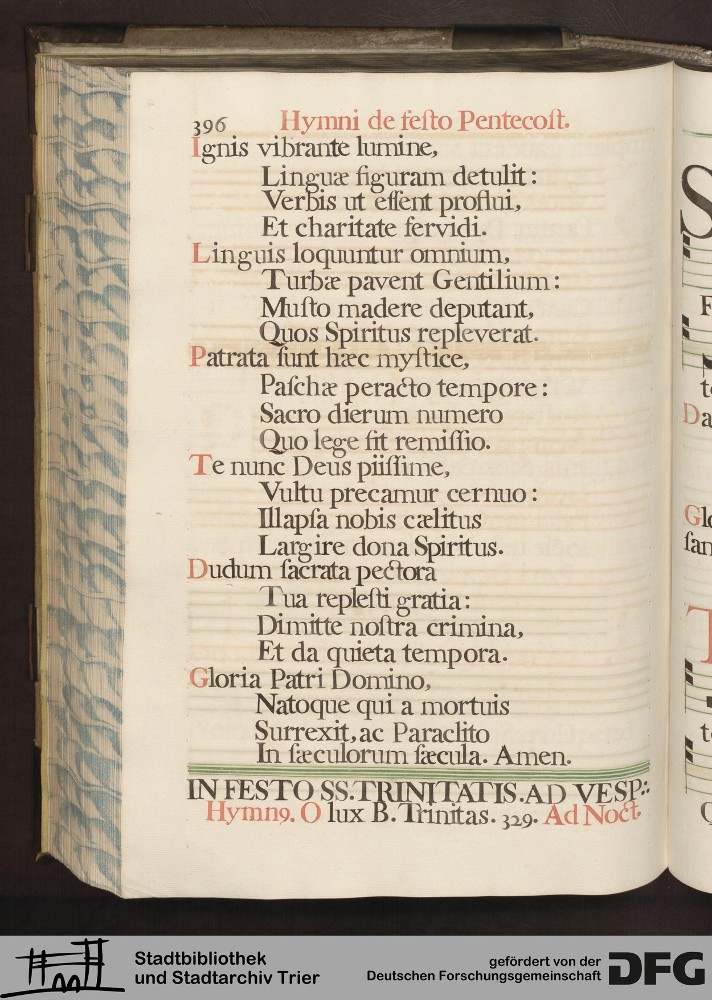 396 Hymni de feſto Pentecoſt.
Ignis vibrante lumine,
Linguæ figuram detulit:
Verbis ut eſſent proflui,
Et charitate fervidi.
Linguis loquuntur omnium,
Turbæ pavent Gentilium:
Muſto madere deputant,
Quos Spiritus repleverat.
Patrata ſunt hæc myſtice,
Paſchæ peracto tempore:
Sacro dierum numero
Quo lege fit remiſſio.
Te nunc Deus piiſſime,
Vultu precamur cernuo:
Illapſa nobis cælitus
Largire dona Spiritus.
Dudum ſacrata pectora
Tua repleſti gratia:
Dimitte noſtra crimina,
Et da quieta tempora.
Gloria Patri Domino,
Natoque qui a mortuis
Surrexit, ac Paraclito
In ſæculorum ſæcula. Amen.
IN FESTO SS. TRINITATIS. AD VESP:.
Hymn9. O lux B. Trinitas. 329. Ad Noct.
Stadtbibliothek
und Stadtarchiv Trier
gefördert von der
Deutschen Forschungsgemeinschaft
DFG